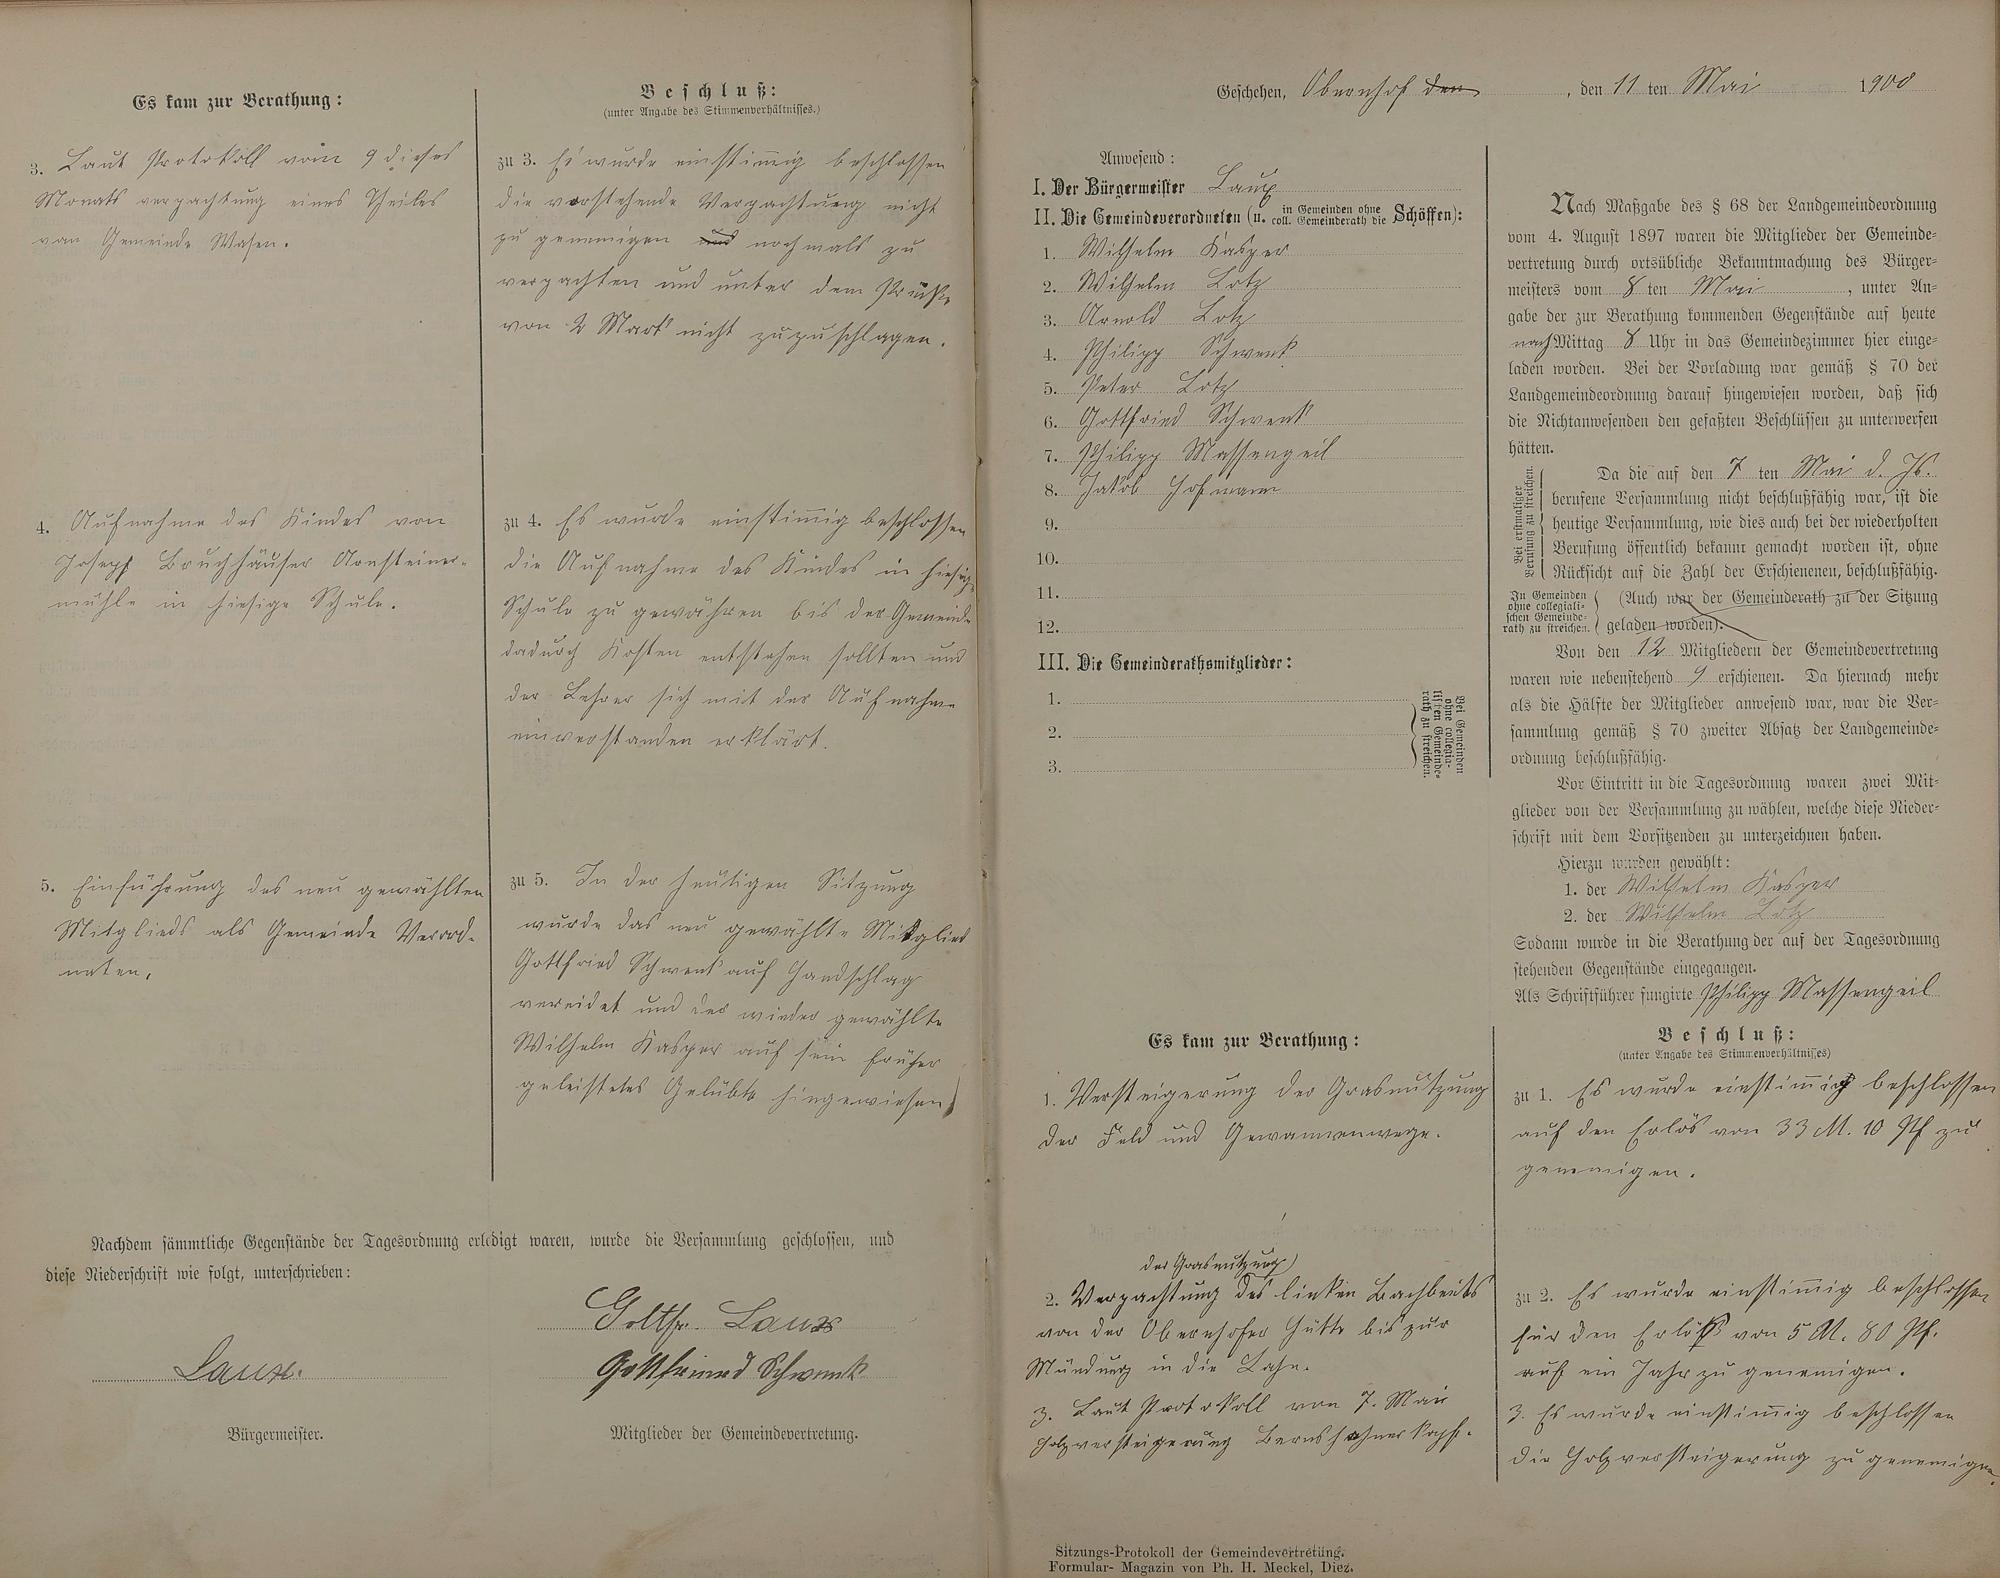 Es kam zur Berathung:
3. Laut Protokoll vom 9 dieses
Monats verpachtung eines Theiles
von Gemeinde Wasen.
4. Aufnahme des Kindes von
Joseph Bruchhäuser Arnsteiner-
mühle in hiesige Schule.
5. Einführung des neu gewählten
Mitglieds als Gemeinde Verord-
neten.
Beschluß:
(unter Angabe des Stimmenverhältnisses.)
zu 3. Es wurde einstimig beschlossen
die vorstehende Verpachtung nicht
zu genemigen und nochmals zu
verpachten und unter dem
von 2 Mark nicht zuzuschlagen.
zu 4. Es wurde einstimig beschlossen
die Aufnahme des Kindes in hiesige
Schule zu gewähren bis der Gemeinde
dadurch Kosten entstehen sollten und
der Lehrer sich mit der Aufnahme
einverstanden erklärt.
zu 5. In der heutigen Sitzung
wurde das neu gewählte Mitglied
Gottfried Schwenk auf Handschlag
vereidet und der wieder gewählte
Wilhelm Kasper auf sein früher
geleistetes Gelübte hingewiesen
Nachdem sämmtliche Gegenstände der Tagesordnung erledigt waren, wurde die Versammlung geschlossen, und
diese Niederschrift wie folgt, unterschrieben:
Gottfr. Laux
Laux.
Gottfried Schwenk
Bürgermeister.
Mitglieder der Gemeindevertretung.
Geschehen, Obernhof den, den 11 ten Mai 1900
Anwesend:
I. Der Bürgermeister Laux
II. Die Gemeindeverordneten (u. in Gemeinden ohne coll. Gemeinderath die Schöffen):
1. Wilhelm Kasper
2. Wilhelm Lotz
3. Arnold Lotz
4. Philipp Schwenk
5. Peter Lotz
6. Gottfried Schwenk
7. Philipp Massengeil
8. Jakob Hofmann
9.
10.
11.
12.
III. Die Gemeinderathsmitglieder:
1.
2.
3.
Bei Gemeinden
ohne collegia-
lischen Gemeinde-
rath zu streichen.
Nach Maßgabe des § 68 der Landgemeindeordnung
vom 4. August 1897 waren die Mitglieder der Gemeinde-
vertretung durch ortsübliche Bekanntmachung des Bürger-
meisters vom 8 ten Mai, unter An-
gabe der zur Berathung kommenden Gegenstände auf heute
nach Mittag 8 Uhr in das Gemeindezimmer hier einge-
laden worden. Bei der Vorladung war gemäß § 70 der
Landgemeindeordnung darauf hingewiesen worden, daß sich
die Nichtanwesenden den gefaßten Beschlüssen zu unterwerfen
hätten.
Bei erstmaliger
Berufung zu streichen.
Da die auf den 7 ten Mai d. Js.
berufene Versammlung nicht beschlußfähig war, ist die
heutige Versammlung, wie dies auch bei der wiederholten
Berufung öffentlich bekannt gemacht worden ist, ohne
Rücksicht auf die Zahl der Erschienenen, beschlußfähig.
In Gemeinden
ohne collegiali-
schen Gemeinde-
rath zu streichen.
(Auch war der Gemeinderath zu der Sitzung
geladen worden).
Von den 12 Mitgliedern der Gemeindevertretung
waren wie nebenstehend 9 erschienen. Da hiernach mehr
als die Hälfte der Mitglieder anwesend war, war die Ver-
sammlung gemäß § 70 zweiter Absatz der Landgemeinde-
ordnung beschlußfähig.
Vor Eintritt in die Tagesordnung waren zwei Mit-
glieder von der Versammlung zu wählen, welche diese Nieder-
schrift mit dem Vorsitzenden zu unterzeichnen haben.
Hierzu wurden gewählt:
1. der Wilhelm Kasper
2. der Wilhelm Lotz
Sodann wurde in die Berathung der auf der Tagesordnung
stehenden Gegenstände eingegangen.
Als Schriftführer fungirte Philipp Massengeil
Es kam zur Berathung:
1. Versteigerung der Grasnutzung
der Feld und Gewannenwege.
der Grasnutzung
2. Verpachtung des linken Bachbeits
von der Obernhofer Hütte bis zur
Mündung in die Lahn.
3. Laut Protokoll von 7. Mai
Holzversteigerung
Beschluß:
(unter Angabe des Stimmenverhältnisses)
zu 1. Es wurde einstimig beschlossen
auf den Erlös von 33 M. 10 Pf zu
genemigen.
zu 2. Es wurde einstimig beschlossen
für den Erlös von 5 M. 80 Pf.
auf ein Jahr zu genemigen.
3. Es wurde einstimig beschlossen
die Holzversteigerung zu genemigen.
Sitzungs-Protokoll der Gemeindevertretung.
Formular- Magazin von Ph. H. Meckel, Diez.